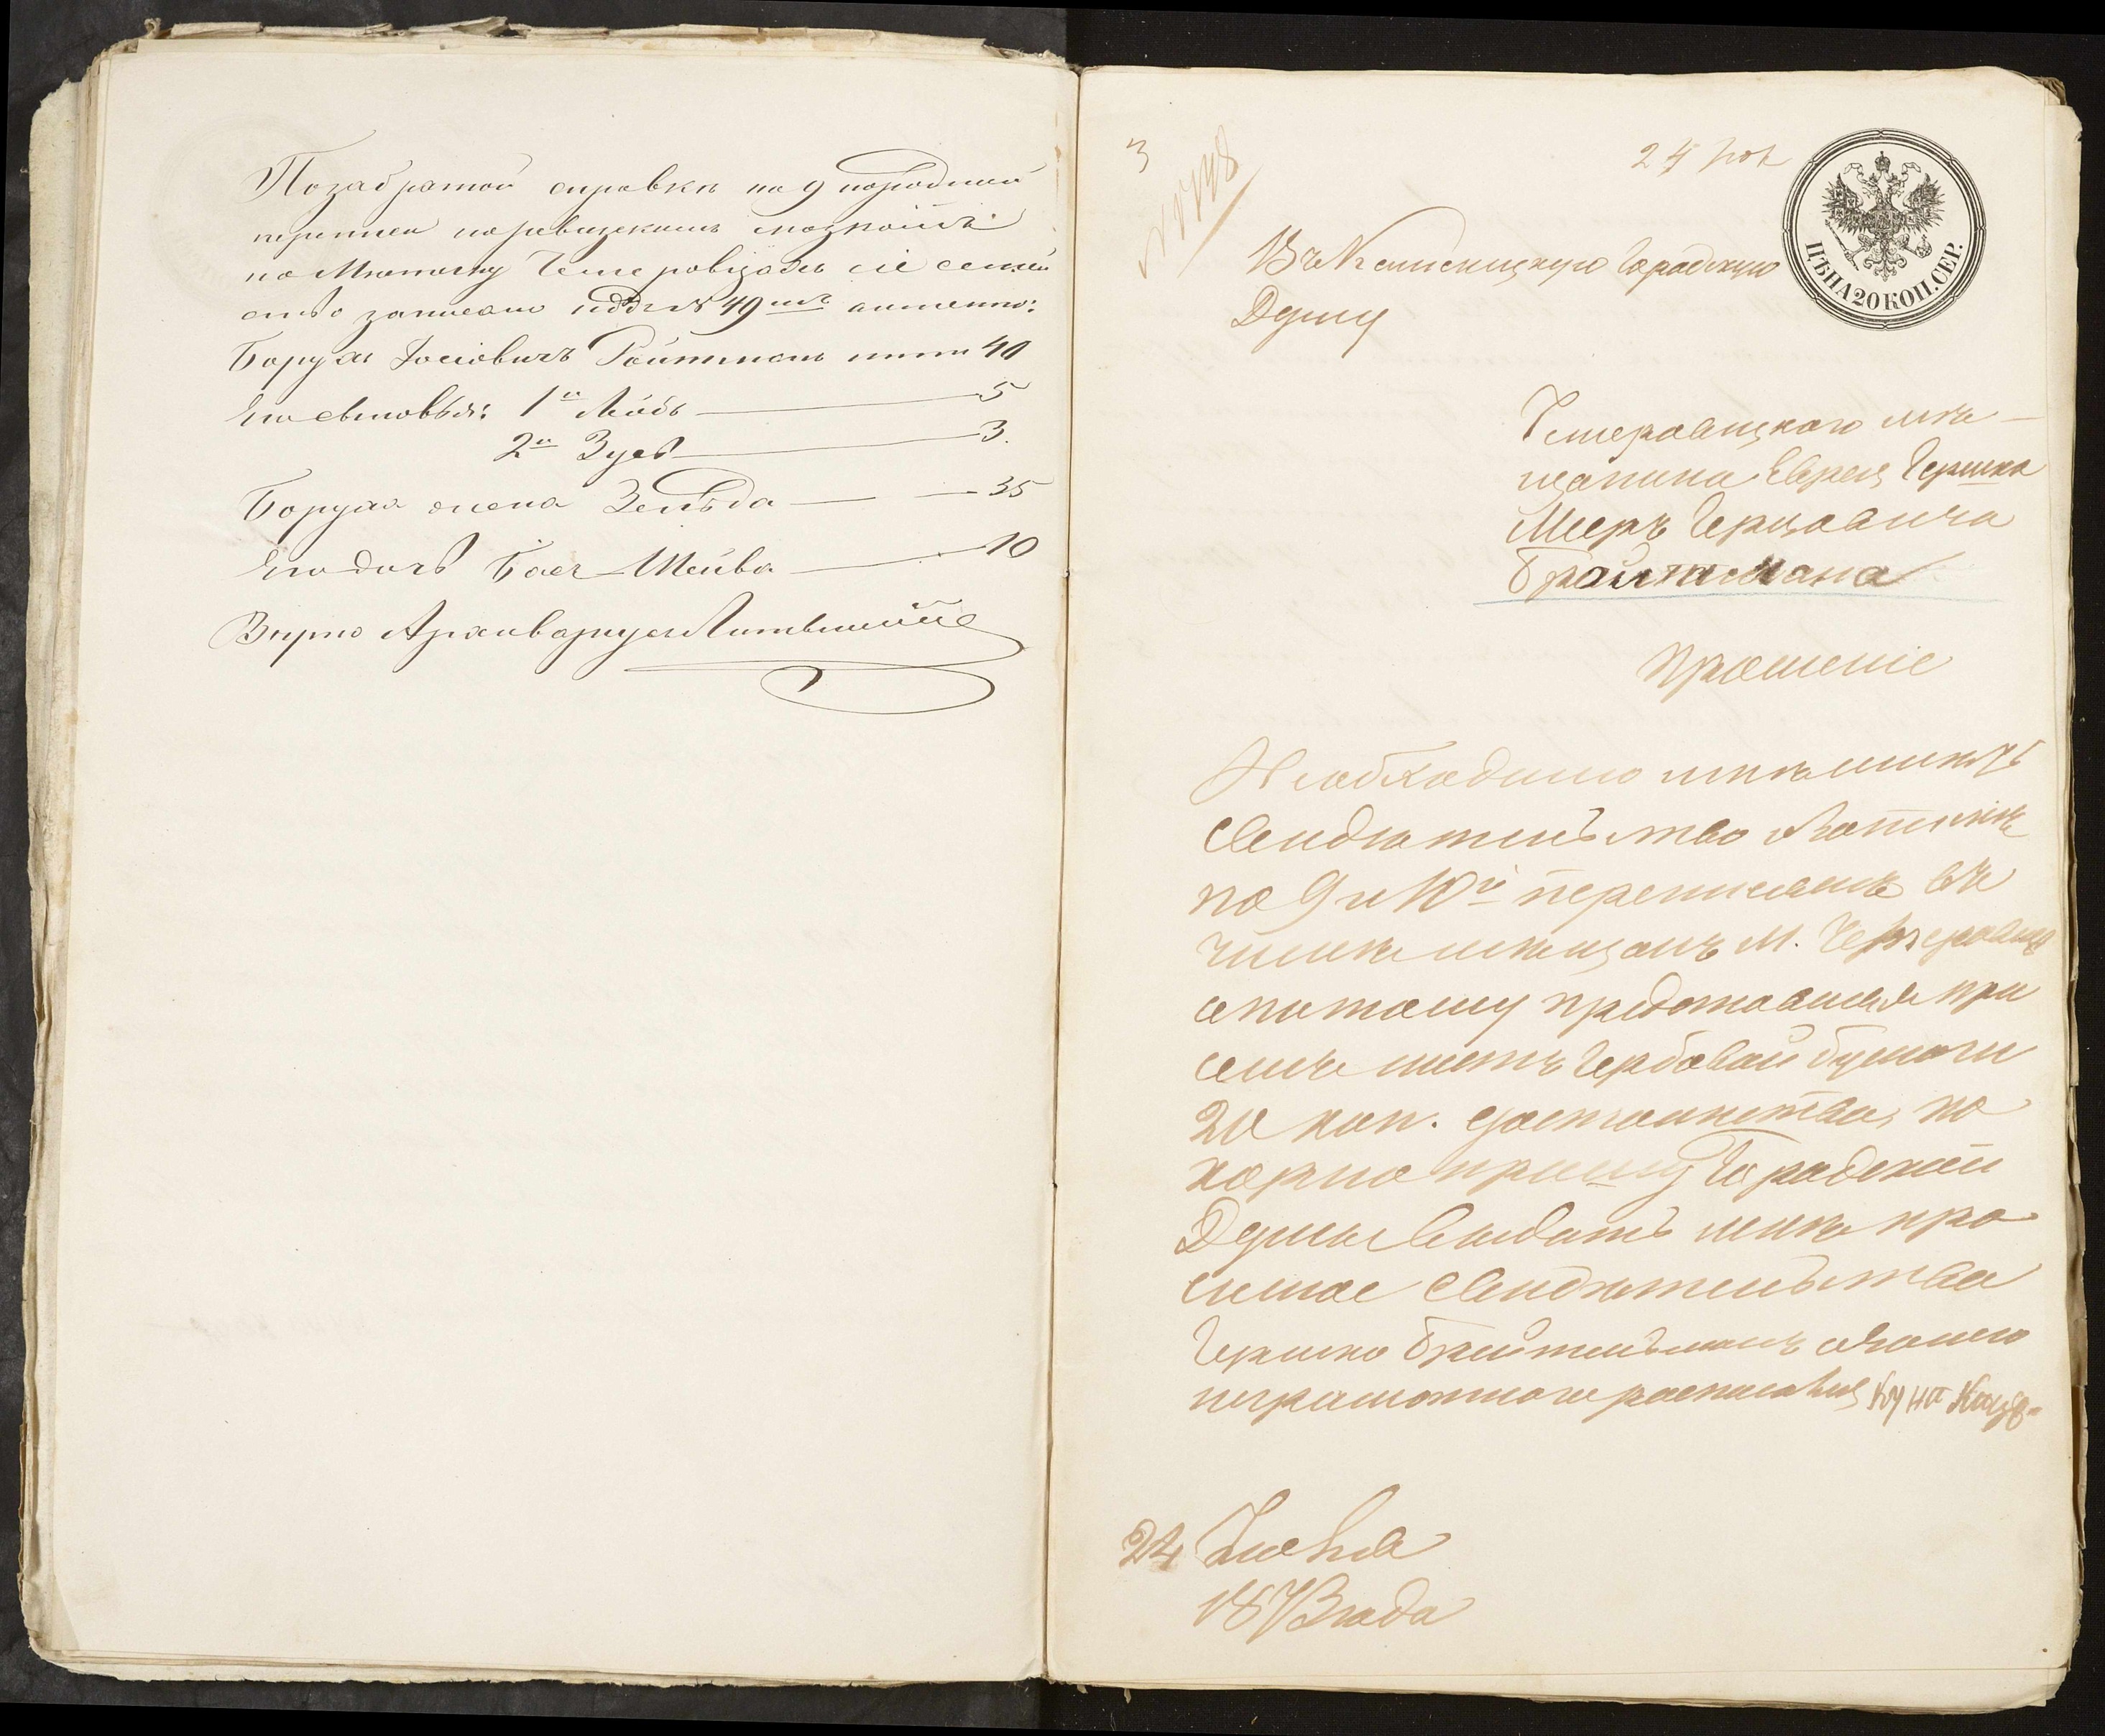 По забратой справкѣ по 9 народной
переписи по ревизскимъ
по Мѣстечку Чемеровцовъ сіе семей
ство записано подъ № 49мъ а именно:
Борухъ Іосіовичъ Ройтманъ 40
Его сыновья: 1й Лейбъ 5
2й Зусь 3
Боруха жена Зельда 35
Его дочь Бася-Шейва 10
Вѣрно Архиваріусъ
3
24
Въ Каменецкую Городскую
Думу
ЦѢНА 20 КОП. СЕР.
Чемеровецкаго мѣ-
щанина Еврея Гершка
Меера Герцовича
Бройтмана
Прошеніе
Необходимо мнѣ имѣть
свидѣтельство о запискѣ
по 9 и 10й переписямъ въ
числѣ мѣщанъ М. Чемеровцы
а потому представляя при
семъ листъ гербовой бумаги
20 коп. достоинства, по
корно прошу Городской
Думы выдать мнѣ про
симое свидѣтельство
Гершко Бройтманъ а за него
неграмотнаго росписался
24 Іюня
1873 года